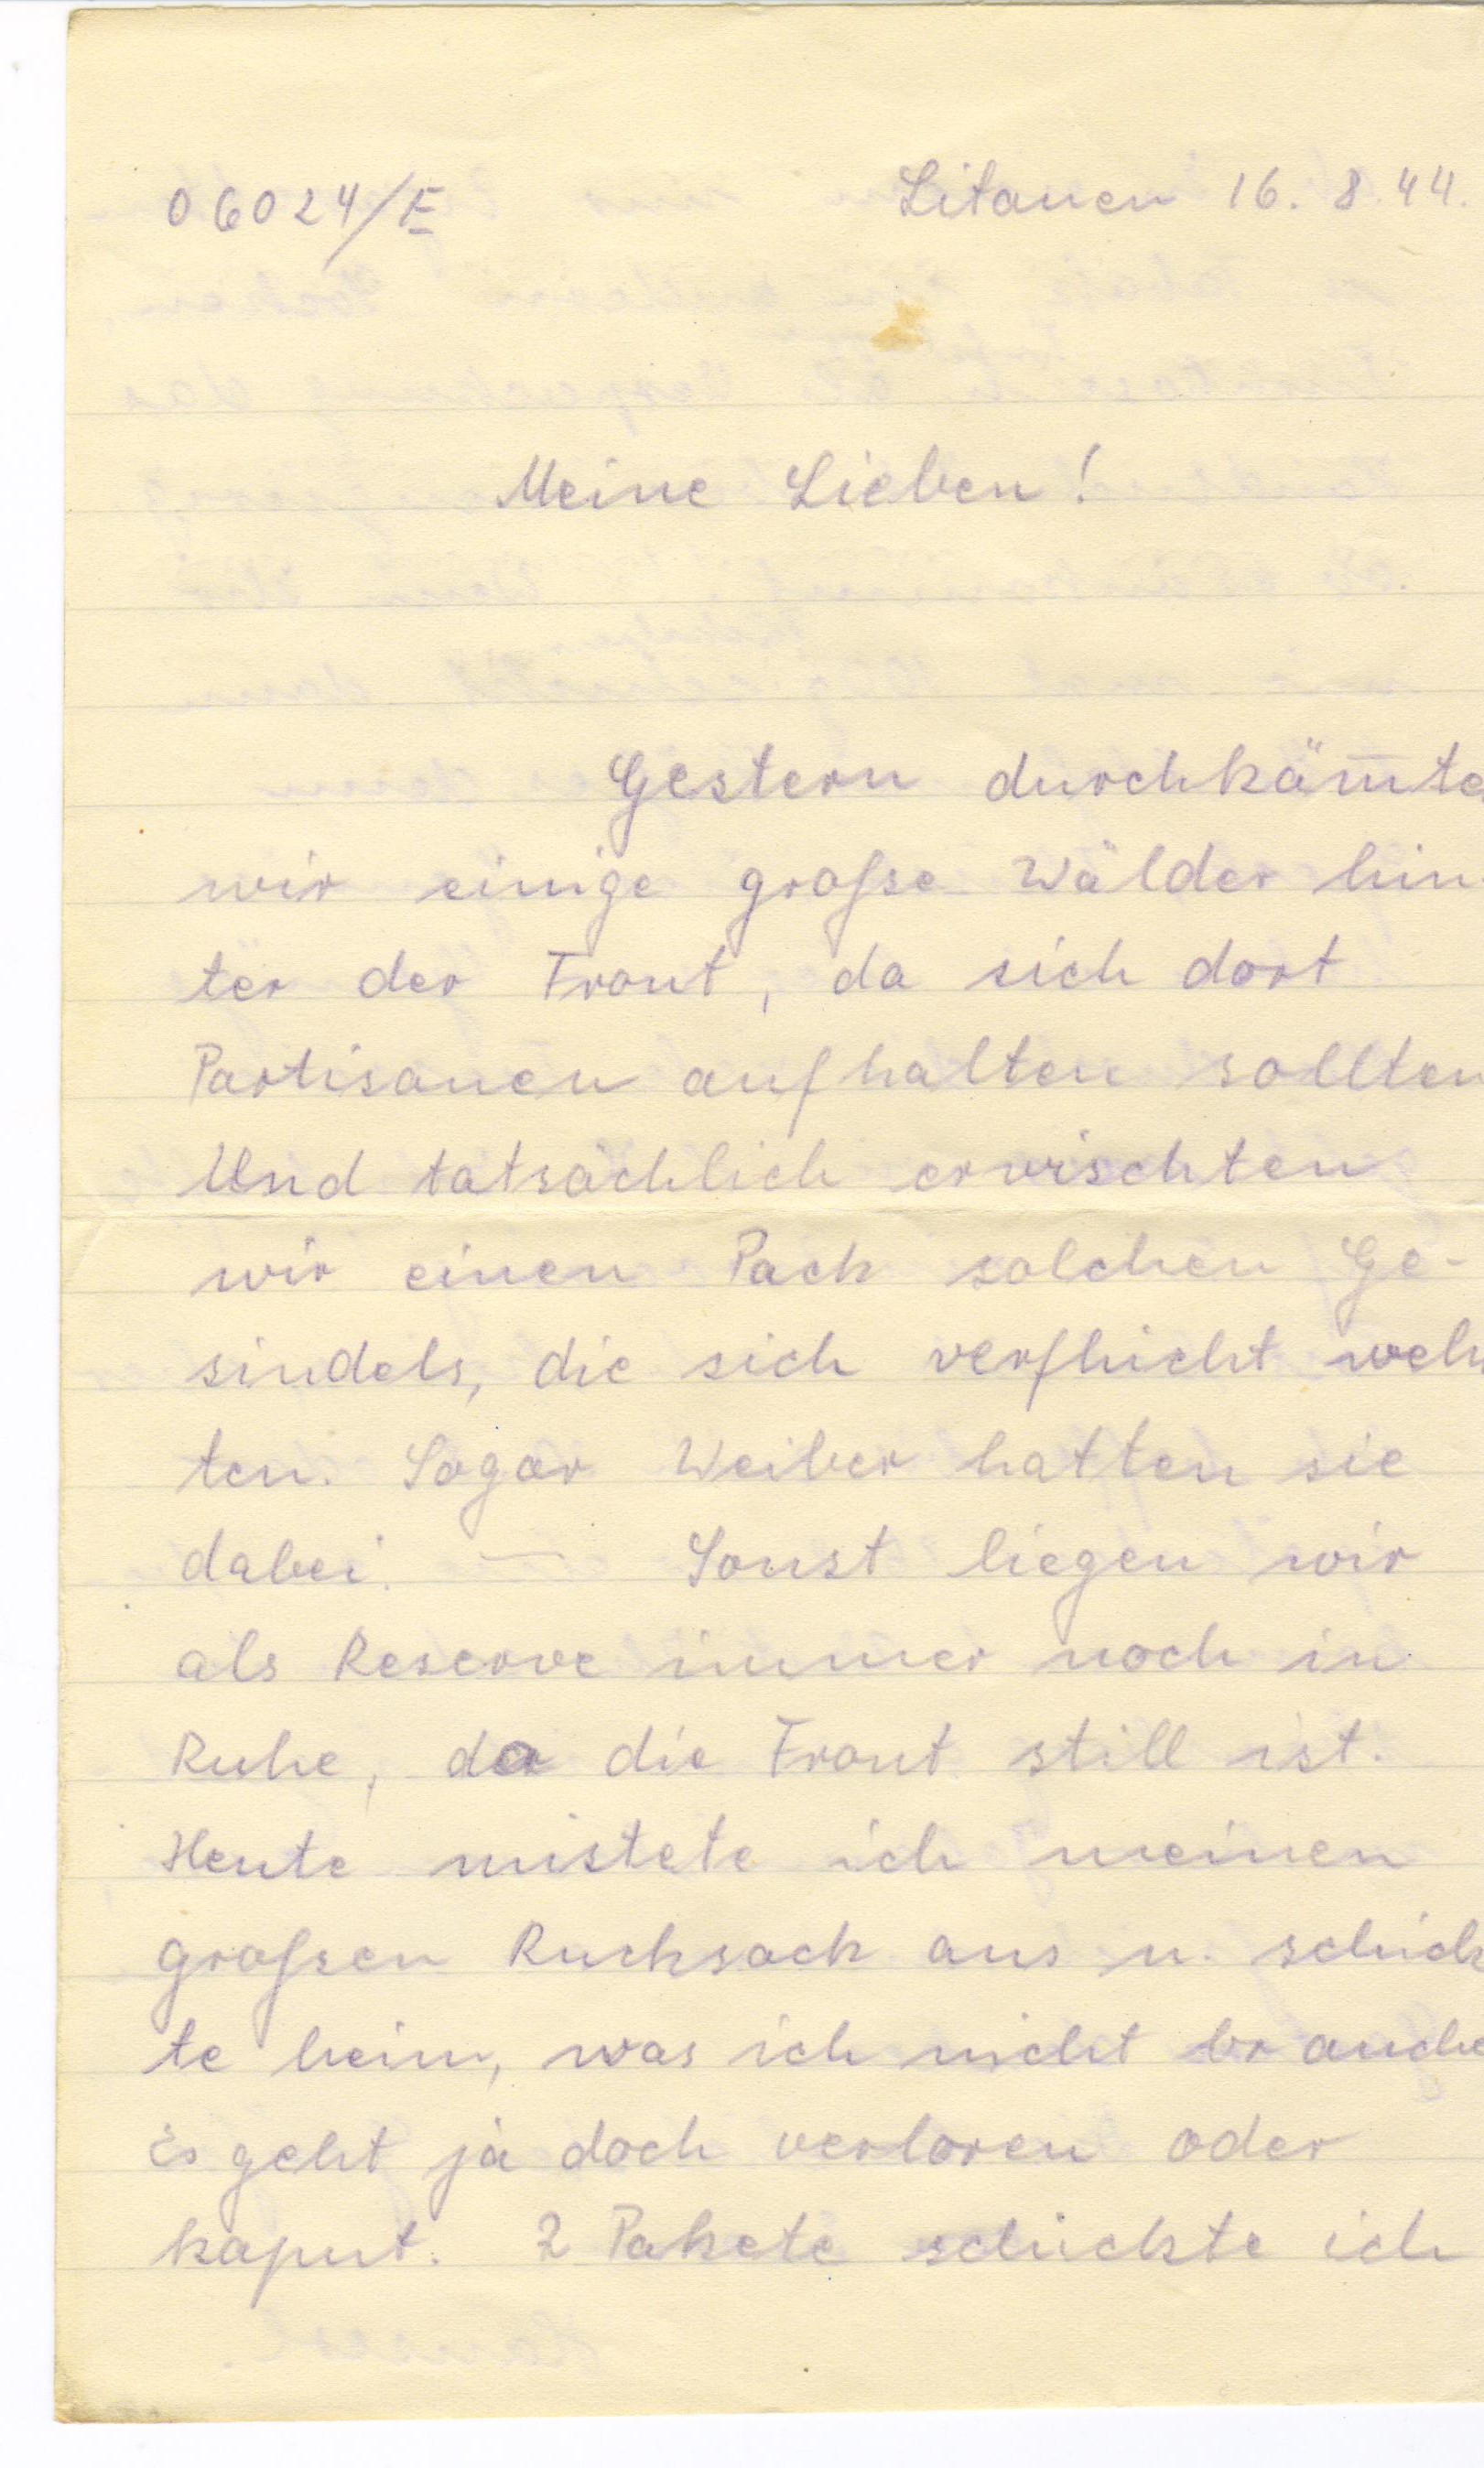 06024/E Litauen 16. 8. 44.
Meine Lieben!
Gestern durchkäm̅te
wir einige große Wälder hin-
ter der Front, da sich dort
Partisanen aufhalten sollten
Und tatsächlich erwischten
wir einen Pack solchen Ge-
sindels, die sich verflucht weh
ten. Sogar Weiber hatten sie
dabei. — Sonst liegen wir
als Reserve immer noch in
Ruhe, da die Front still ist.
Heute mistete ich meinen
großen Rucksack aus u. schick
te heim, was ich nicht brauche
Es geht ja doch verloren oder
kaput. 2 Pakete schickte ich